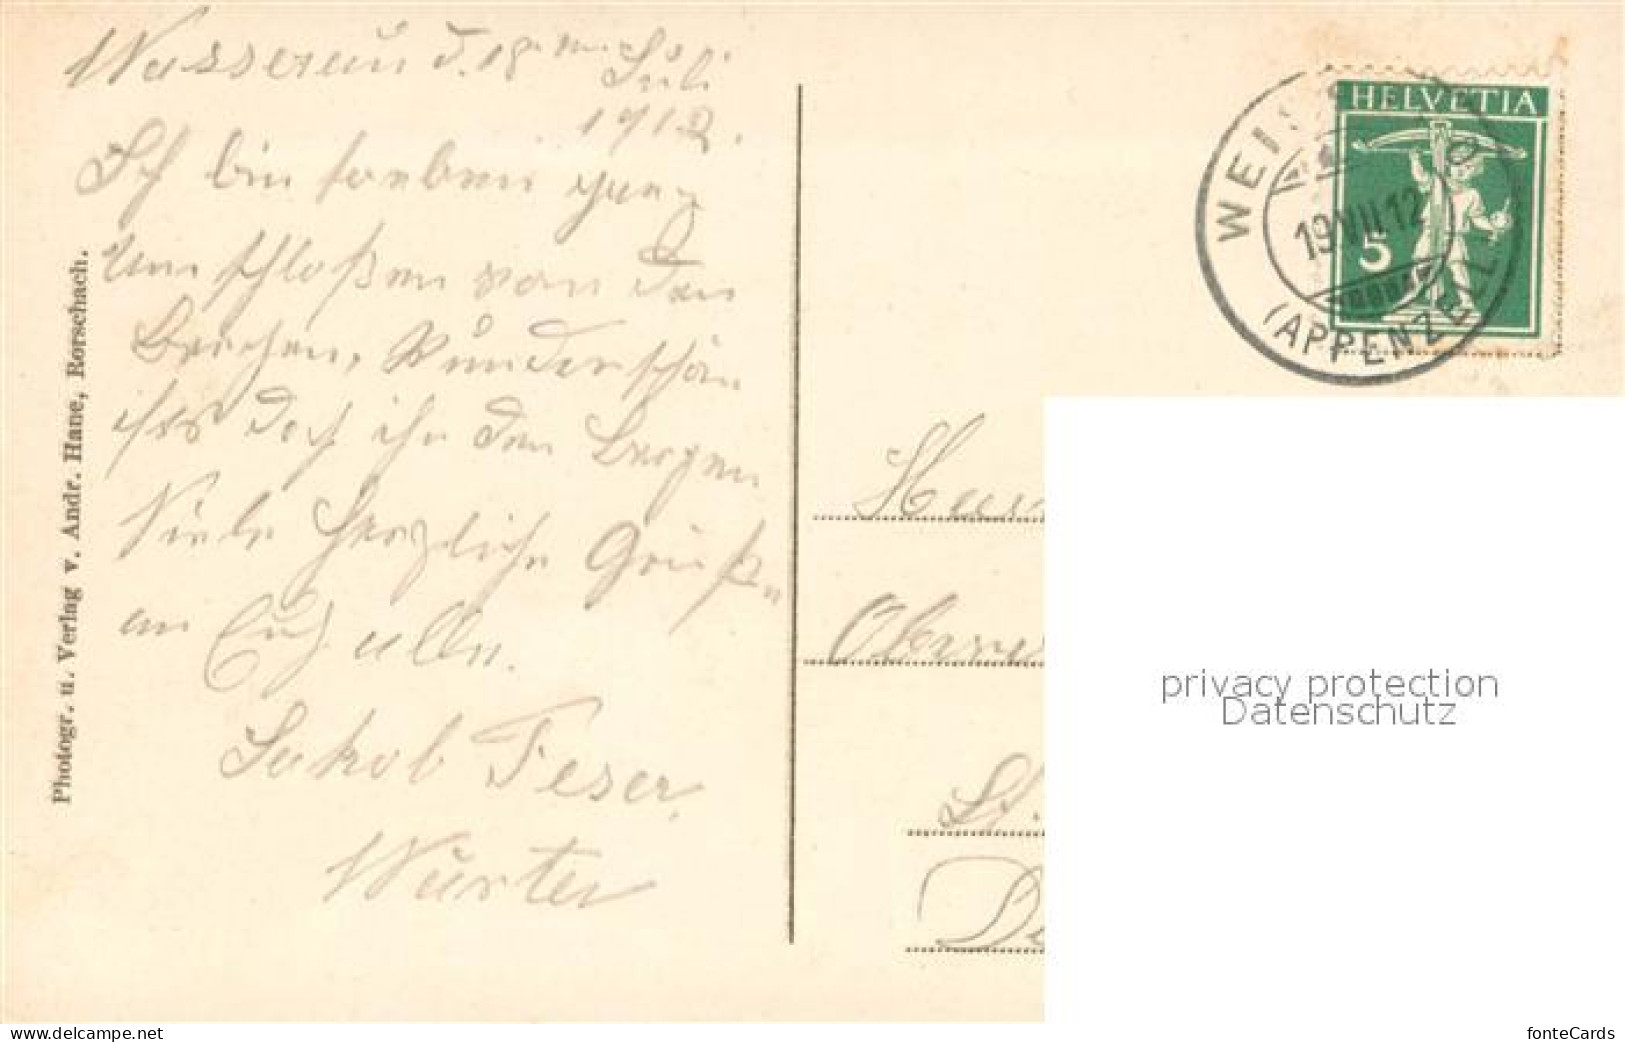 Wasserau d. 18ten Juli
1912.
Ich bin soeben ganz
umschloßen von den
Bergen, Wunderschön
ists doch in den Bergen
Viele herzliche Grüße
an Euch alle.
Jakob Feser,
Photogr. u. Verlag v. Andr. Hane, Rorschach.
HELVETIA
5
WEISS
19 VII 12
(APPENZELL)
privacy protection
Datenschutz
www.delcampe.net
fonteCards